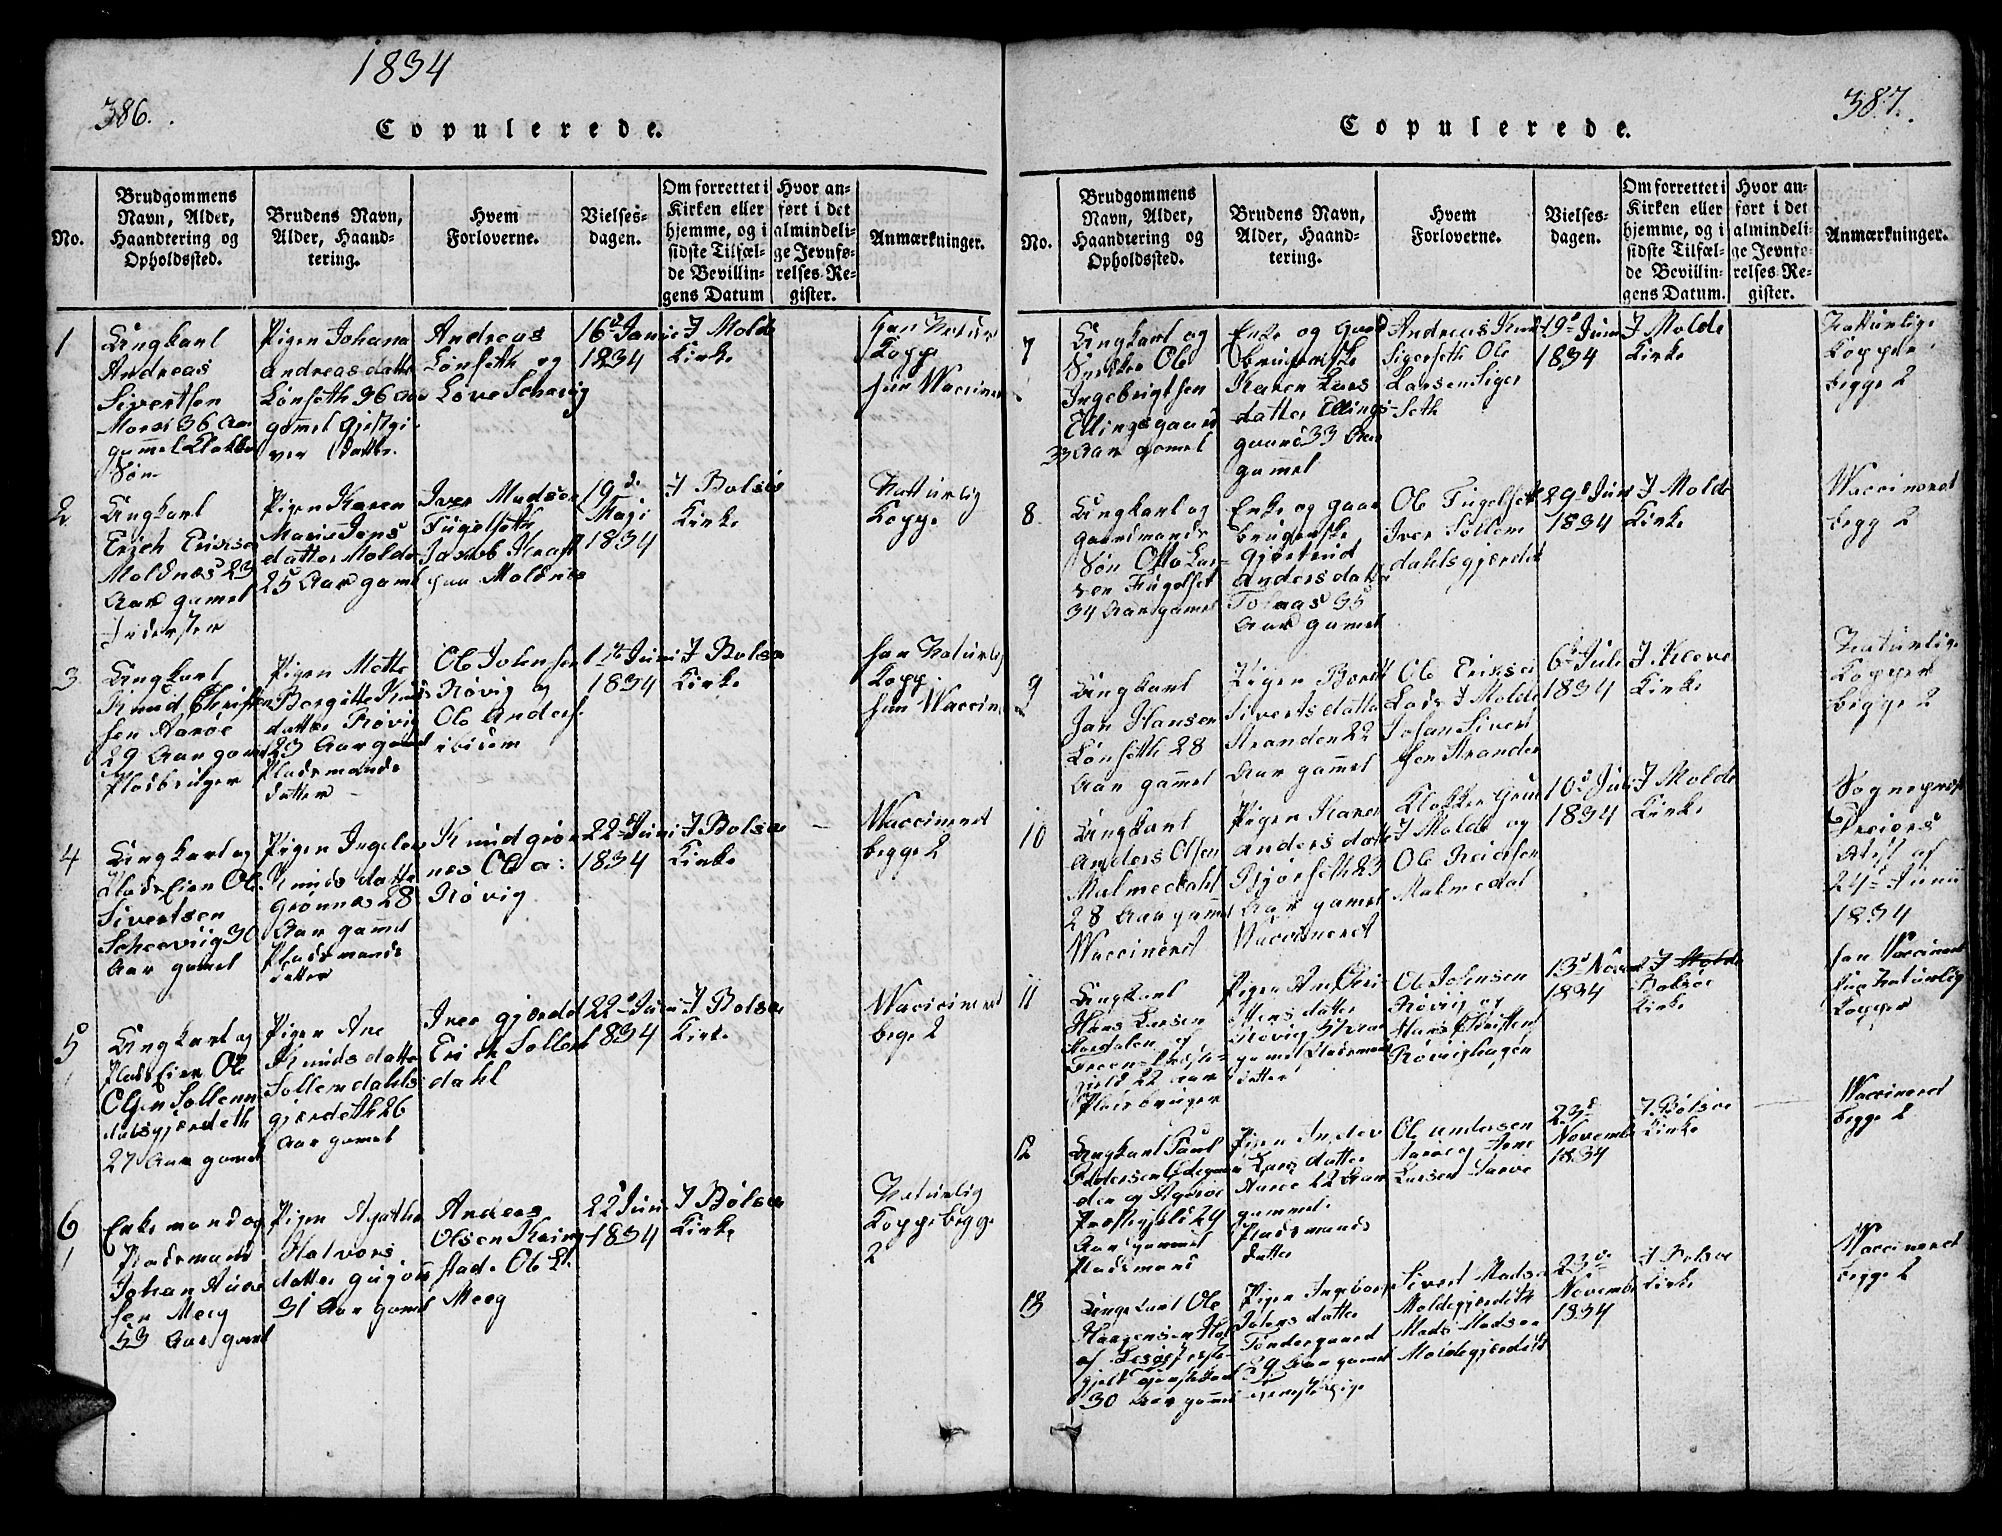 1834
386.
Copulerede.
No.
Brudgommens
Navn, Alder,
Haandtering og
Opholdssted.
Brudens Navn,
Alder, Haand-
tering.
Hvem
Forloverne.
Vielses-
dagen.
Om forrettet i
Kirken eller
hjemme, og i
sidste Tilfæl-
de Bevillin-
gens Datum
Hvor an-
ført i det
almindeli-
ge Jevnfø-
relses Re-
gister.
Anmærkninger.
1
Ungkarl
Andreas
Sivertsen
36 Aar
gammel Klokker
Søn
Pigen Johana
Andreasdatter
Lønseth 36 Aar
gammel Gjestgi
ver Datter
Andreas
Lønseth og
16de Juni
1834
I Molde
Kirke
han Natur
Kopper
hun Waccineret
2
Ungkarl
Erich Eriksen
Moldnæs 23
Aar gamel
Inderster
Pigen Karen
Marie Jens
datter Molde
25 Aar gamel
Iver Madsen
Fugelseth
Jacob Kraft
paa Moldnes
19de
Maji
1834
I Bolsø
Kirke
Naturlig
Kopper
3
Ungkarl
Knud Christen
sen Aarøe
29 Aar gamel
Pladsbruger
Pigen Mette
Borgitte Knuds
datter Røvig
23 Aar gamel
Pladsmands
datter
Ole Johnsen
Røvig og
Ole Anders.
ibidem
1te Juni
1834
I Bolsø
Kirke
han Naturlig
Kopp.
hun Waccine
4
Ungkarl og
Plads Eier Ole
Sivertsen
30
Aar gamel
Pigen Ingeborg
Knuds datter
Grønnes 28
Aar gamel
Pladsmands
datter
Knud Grøn
nes Ole
Røvig
22de Juni
1834
I Bolsø
Kirke
Waccineret
begge 2
5
Ungkarl og
Plads Eier Ole
Olsen Sollem
dalsgjerdeth
27 Aar gamel
Pigen Ane
Knudsdatter
Sollemdahls
gjerdeth 26
Aar gamel
Iver Gjerdet
Erich Sollem
dahl
22de Juni
1834
I Bolsø
Kirke
Waccineret
bege 2
6
Enkemand og
Pladsmand
Johan
sen Meeg
53 Aar gamel
Pigen Agathe
Halvors
datter
31 Aar gamel
Andreas
Olsen Kring
stad. Ole
Meeg
22de Juni
1834
I Bolsø
Kirke
Naturlig
Koppe begge
2
387.
Copulerede.
No.
Brudgommens
Navn, Alder,
Haandtering og
Opholdssted.
Brudens Navn,
Alder, Haand-
tering.
Hvem
Forloverne.
Vielses-
dagen.
Om forrettet i
Kirken eller
hjemme, og i
sidste Tilfæl-
de Bevillin-
gens Datum.
Hvor an-
ført i det
almindeli-
ge Jevnfø-
relses Re-
gister.
Anmærkninger.
7
Ungkarl og
Snekker Ole
Ingebrigtsen
Ellingsgaard
33 Aar gamel
Enke og Gaard
brugerske
Karen Lars
datter Ellings
gaard 33 Aar
gammel
Andreas Knud
Sigerseth Ole
Larsen Siger
seth
19de Juni
1834
I Molde
Kirke
Naturlige
Kopper
begge 2
8
Ungkarl og
Gaardmands
Søn Otto Lar
sen Fugelset
34 Aar gamel
Enke og Gaar
brugerske
Gjertrud
Andersdatter
35
Aar gamel
Ole Fugelseth
Iver Sollem
dahlsgjerdet
29de Juni
1834
I Molde
Kirke
Waccineret
begg 2
9
Ungkarl
Jan Hansen
Lønseth 28
Aar gammel
Pigen Bereth
Sivertsdatter
Stranden 22
Aar gammel
Ole Eriksen
I Molde
Johan Sivert
sen Stranden
6te Juli
1834
I Kleve
Kirke
Naturlige
Kopper
begge 2
10
Ungkarl
Anders Olsen
Malmedahl
28 Aar gammel
Waccineret
Pigen Karen
Andersdatter
Bjørseth 23
Aar gamel
Waccineret
Klokker
I Molde og
Ole
Malmedal
10de Juli
1834
I Molde
Kirke
Sogneprest
Attest af
24de Junii
1834
11
Ungkarl
Hans Larsen
Aar
Pladsbruger
Pigen
datter
Røvig
gamel Pladsmands
datter
Ole Johnsen
Røvig og
Hans Christens.
Røvighagen
13de Novem
1834
I Molde
Bolsøe
Kirke
han Waccineret
hun Naturlig
Kopper
12
Ungkarl Paul
Pedersen
Præstegjeld 24
Aar gammel
Pladsmand
Pigen
Lars datter
Aarøe 22 Aar
gammel
Pladsmands
datter
Ole Andersen
Aarøe og Arne
Larsen Aarøe
23de
November
1834
I Bolsøe
Kirke
Waccineret
begge 2
13
Ungkarl Ole
30 Aar gammel
Pigen Ingeborg
Johns datter
Tøndergaard
29 Aar gamel
Tienestepige
Sivert Madsen
Moldegjerdeth
Mads Madsen
Moldegjerdeth
23de
November
1834
I Bolsøe
Kirke
Waccineret
begge 2